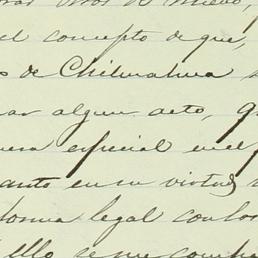 el concepto de que,
de Chihuahua
algun acto,
especial en el
en su virtud
forma legal con los
Ello se me